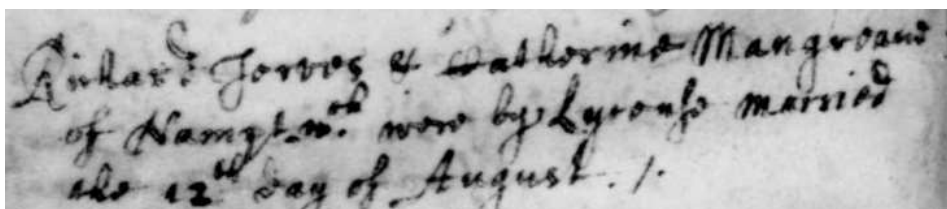 Richard Jerves & Katherine Mangreave
of Namptwch were by Lycense married
the 12th day of August ./.